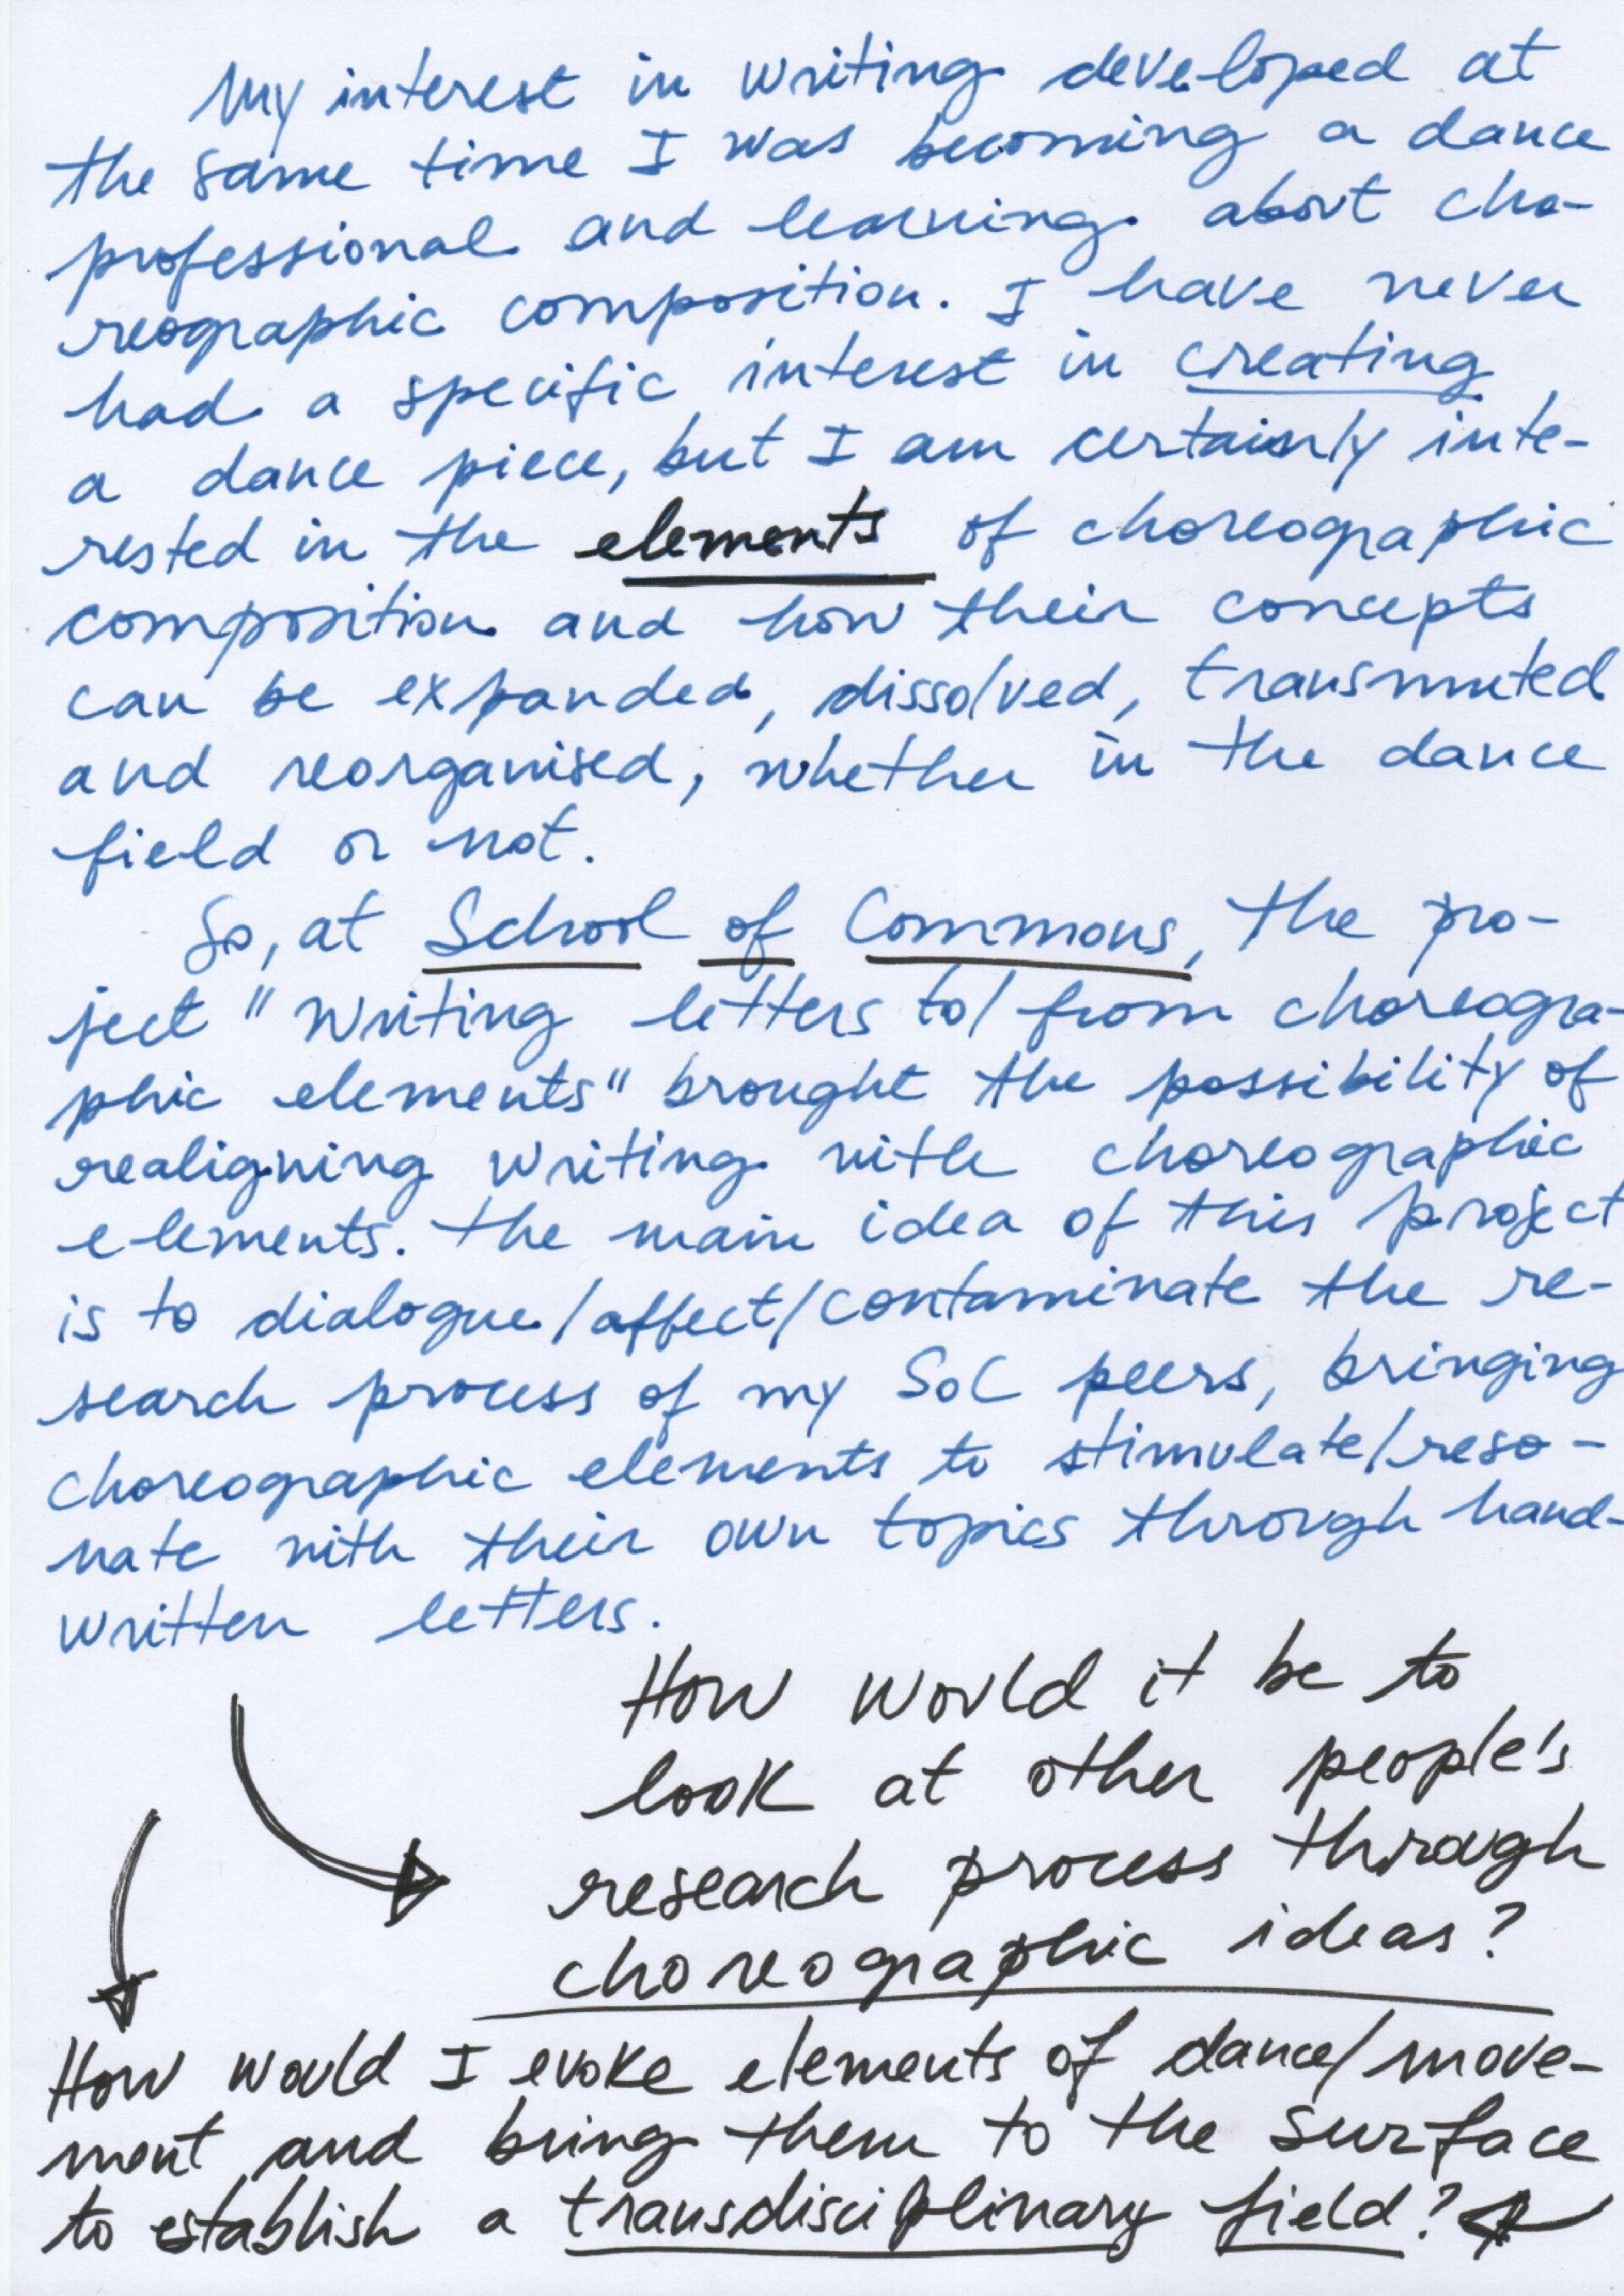 My interest in writing developed at
the same time I was becoming a dance
professional and learning about cho-
reographic composition. I have never
had a specific interest in creating
a dance piece, but I am certainly inte-
rested in the elements of choreographic
composition and how their concepts
can be expanded, dissolved, transmuted
and reorganised, whether in the dance
field or not.
So, at School of Commons, the pro-
ject "writing letters to/from choreogra-
phic elements" brought the possibility of
realigning writing with choreographic
elements. The main idea of this project
is to dialogue/affect/contaminate the re-
search process of my SoC peers, bringing
choreographic elements to stimulate/reso-
nate with their own topics through hand-
written letters.
How would it be to
look at other people's
research process through
choreographic ideas?
How would I evoke elements of dance/move-
ment and bring them to the surface
to establish a transdisciplinary field?